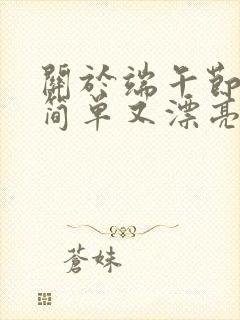 關於端午節
简单又漂亮
蒼妹